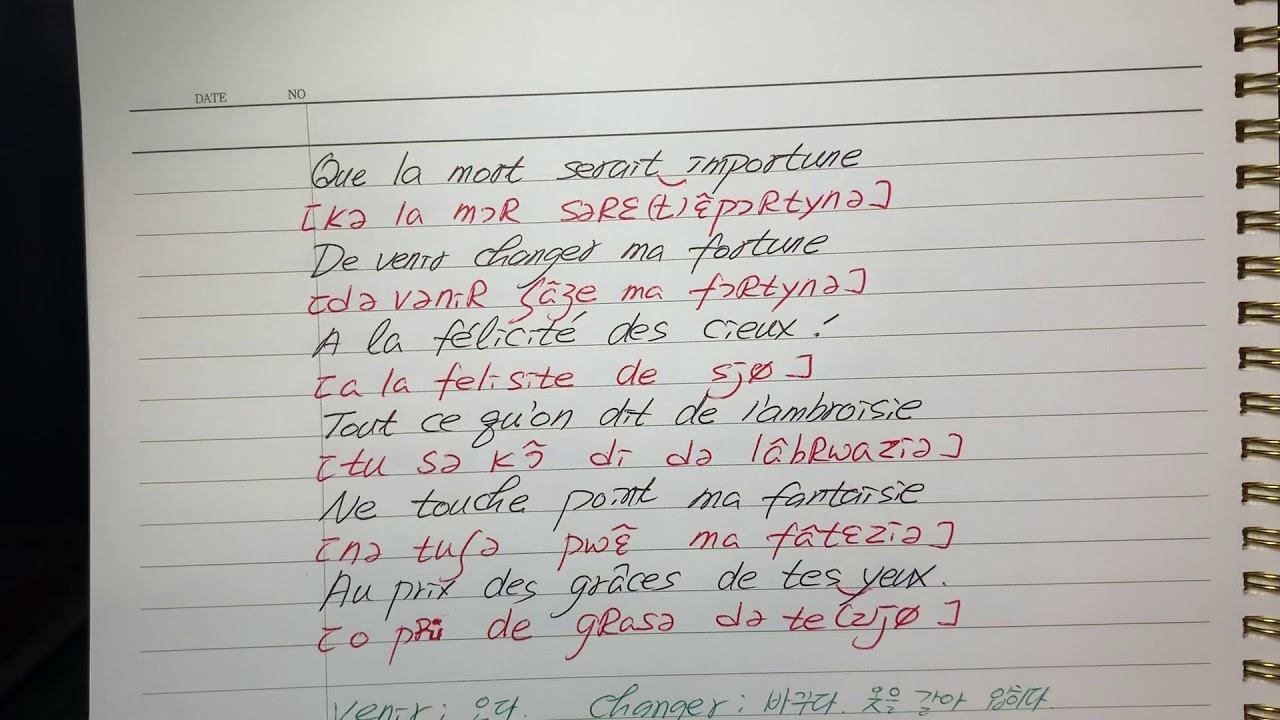 DATE NO
Que la mort serait importune
[Kə la mɔR səRɛ(t)ɛ̂pɔRtynə]
De venir changer ma fortune
[də vəniR ʃâʒe ma fɔRtynə]
A la félicité des cieux !
[a la felisite de sjø]
Tout ce qu'on dit de l'ambroisie
[tu sə Kɔ̂ di də lâbRwaziə]
Ne touche point ma fantaisie
[nə tuʃə pwɛ̂ ma fâtɛziə]
Au prix des grâces de tes yeux.
[o pRi de gRasə də te(z)jø]
Venir ; 오다. Changer ; 바꾸다. 옷을 갈아 입히다.